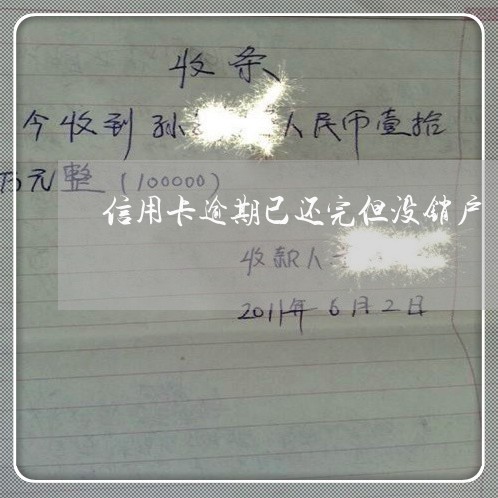 收条
今收到孙 人民币壹拾
万元整(100000)
信用卡逾期已还完但没销户
收款人
2011年6月2日